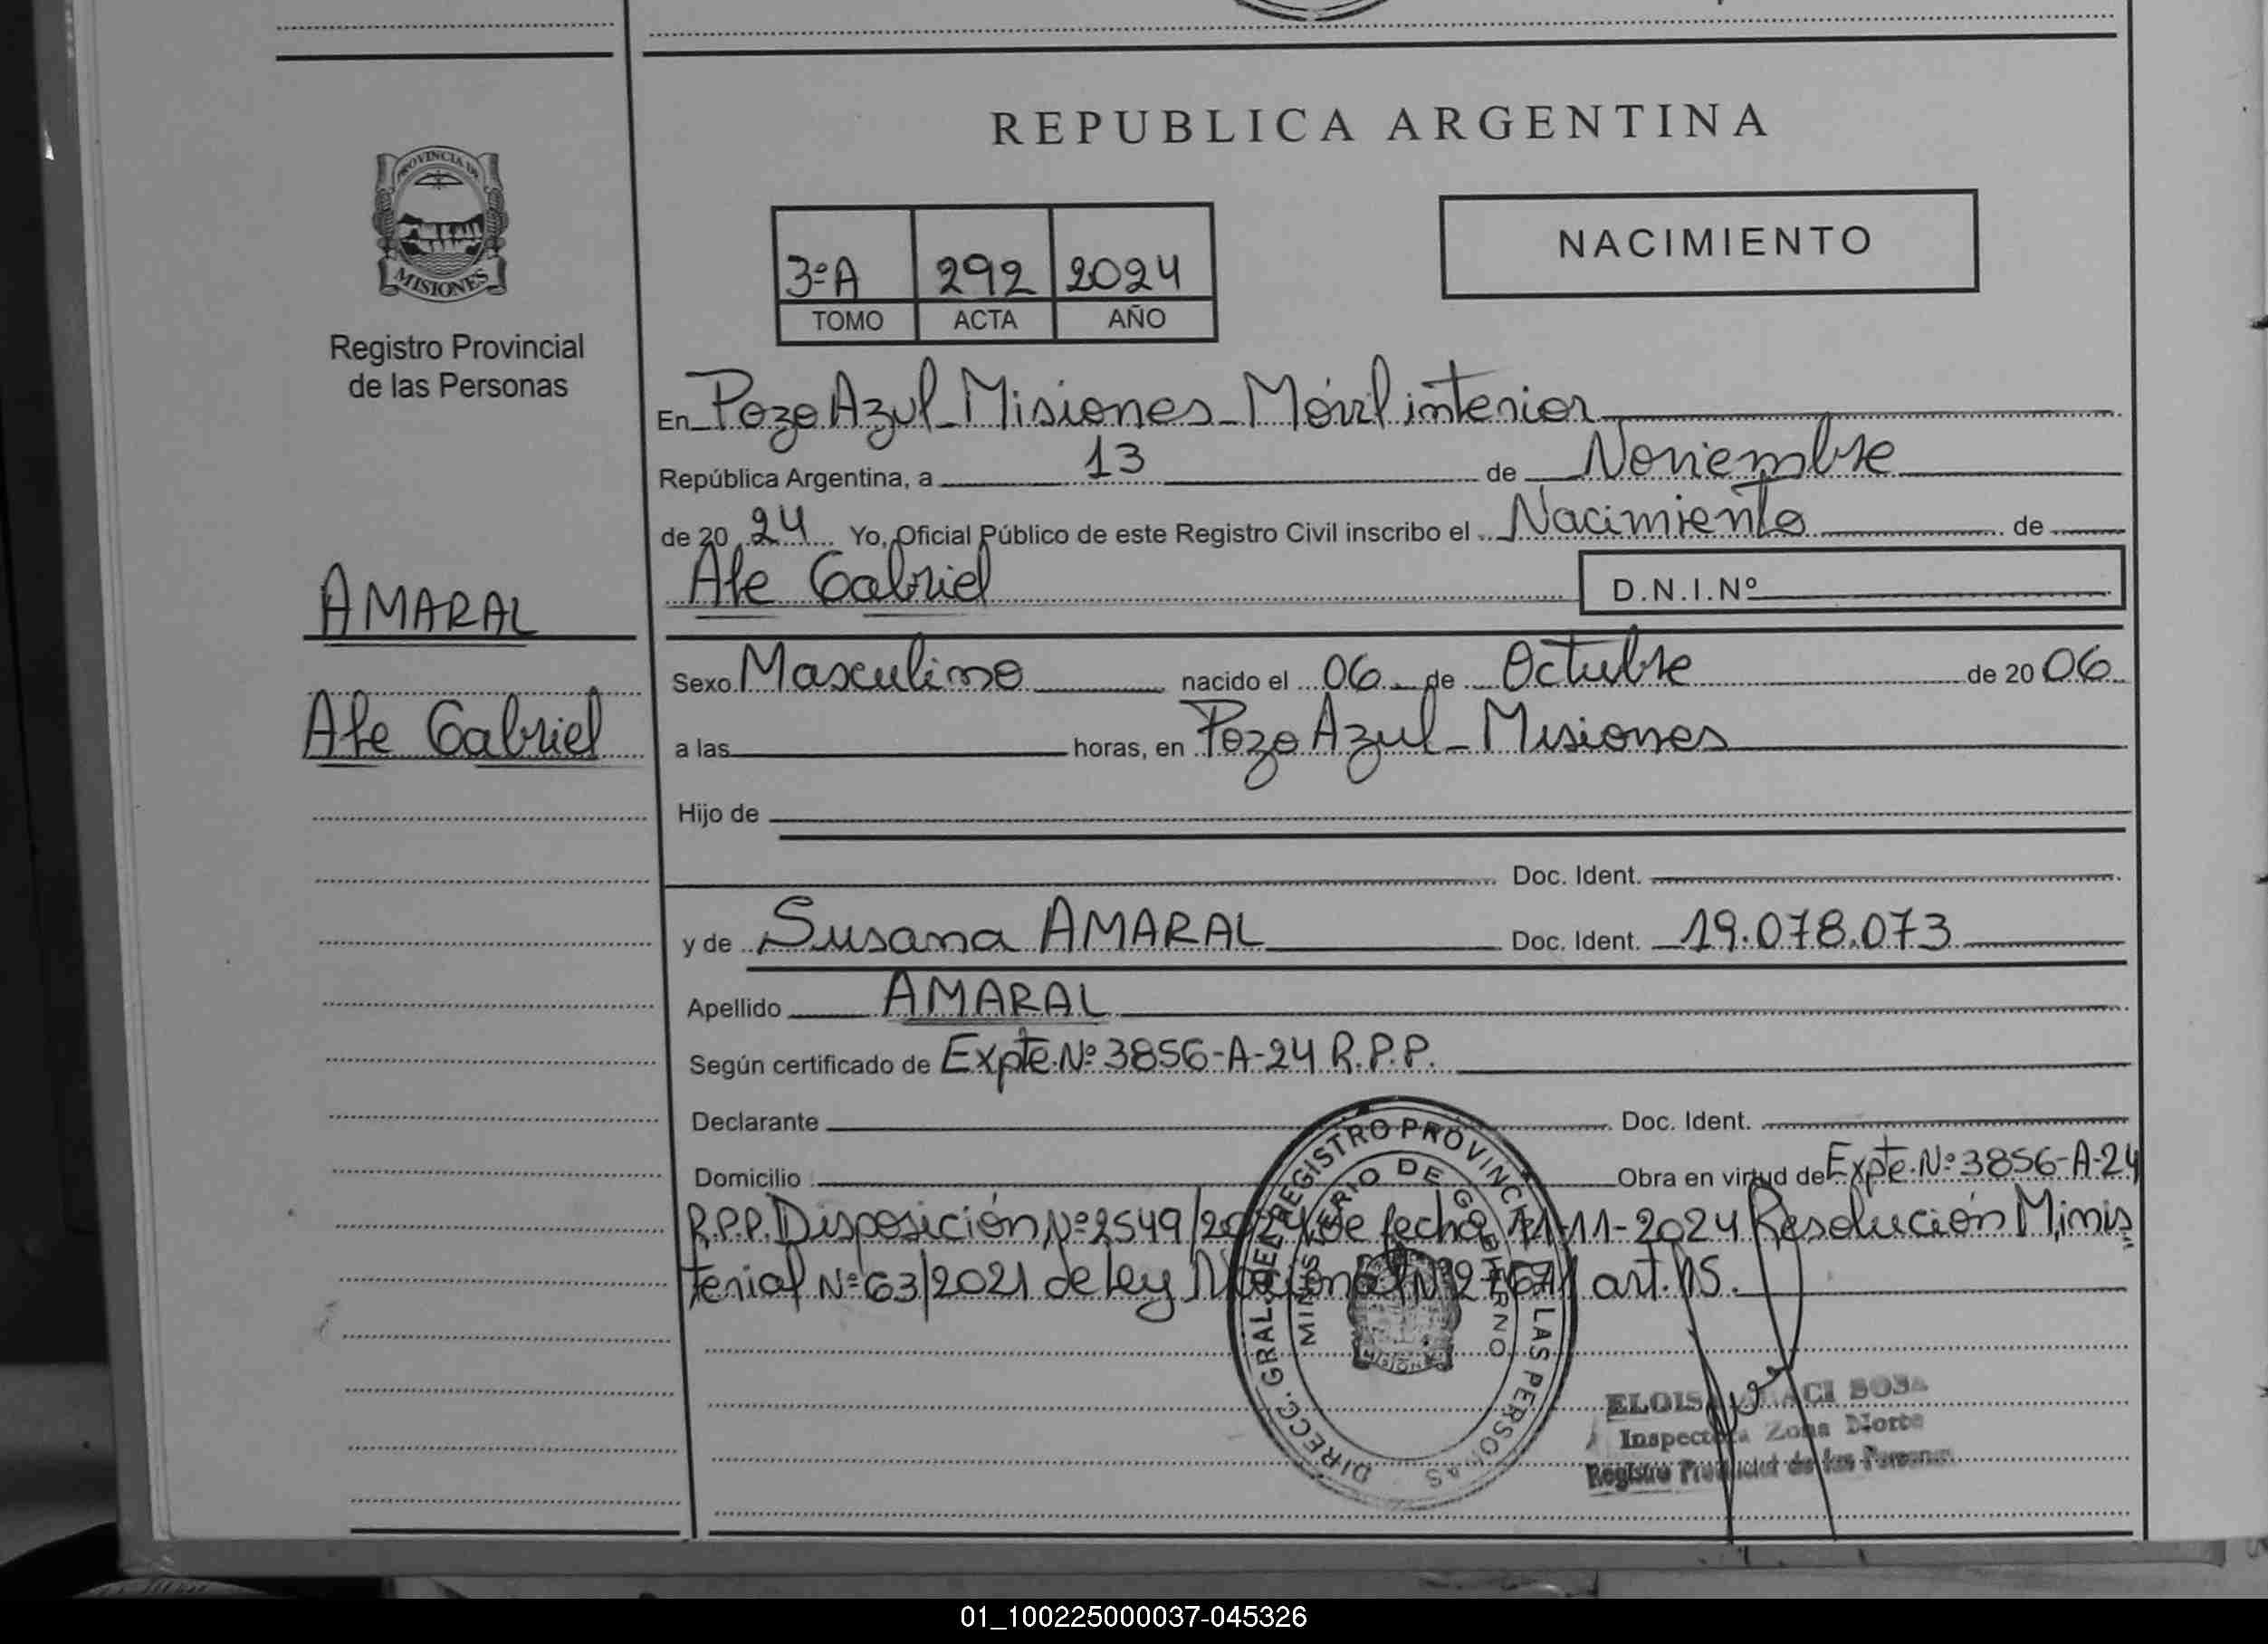 REPUBLICA ARGENTINA
PROVINCIA DE
MISIONES
Registro Provincial
de las Personas
NACIMIENTO
3ºA 292 2024
TOMO ACTA AÑO
En Pozo Azul - Misiones - Móvil interior
República Argentina, a 13 de Noviembre
de 20 24 Yo, Oficial Público de este Registro Civil inscribo el Nacimiento de
Ale Gabriel D.N.I.Nº
AMARAL
Ale Gabriel
Sexo Masculino nacido el 06 de Octubre de 20 06
a las horas, en Pozo Azul - Misiones
Hijo de
Doc. Ident.
y de Susana AMARAL Doc. Ident. 19.078.073
Apellido AMARAL
Según certificado de Expte. Nº 3856-A-24 R.P.P.
Declarante Doc. Ident.
Domicilio Obra en virtud de Expte. Nº 3856-A-24
R.P.P. Disposición Nº 2549/2024 de fecha 11-11-2024 Resolución Minis
terial Nº 63/2021 de Ley Nacional Nº art. 
DIRECC. GRAL. DEL REGISTRO PROVINCIAL DE LAS PERSONAS
MINISTERIO DE GOBIERNO
MISIONES
SOSA
Inspectora Zona Norte
Registro Provincial de las Personas
01_100225000037-045326